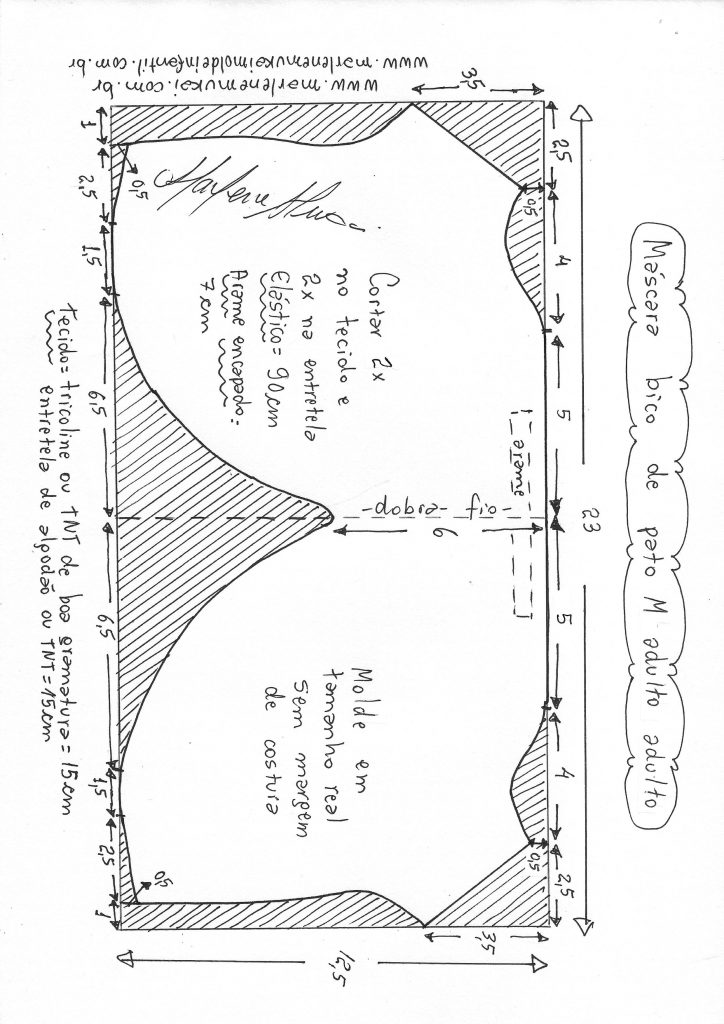 Máscara bico de pato M adulto adulto
23
2,5
4
5
5
4
2,5
3,5
0,5
0,5
3,5
12,5
arame
fio - dobra -
9
Cortar 2x
no tecido e
2x na entretela
Elástico = 90cm
Arame encapado =
7cm
Molde em
tamanho real
sem margem
de costura
0,5
0,5
1
2,5
1,5
6,5
6,5
1,5
2,5
1
www.marlenemukaimoldeinfantil.com.br
www.marlenemukai.com.br
Tecido = tricoline ou TNT de boa gramatura = 15cm
entretela de algodão ou TNT = 15cm